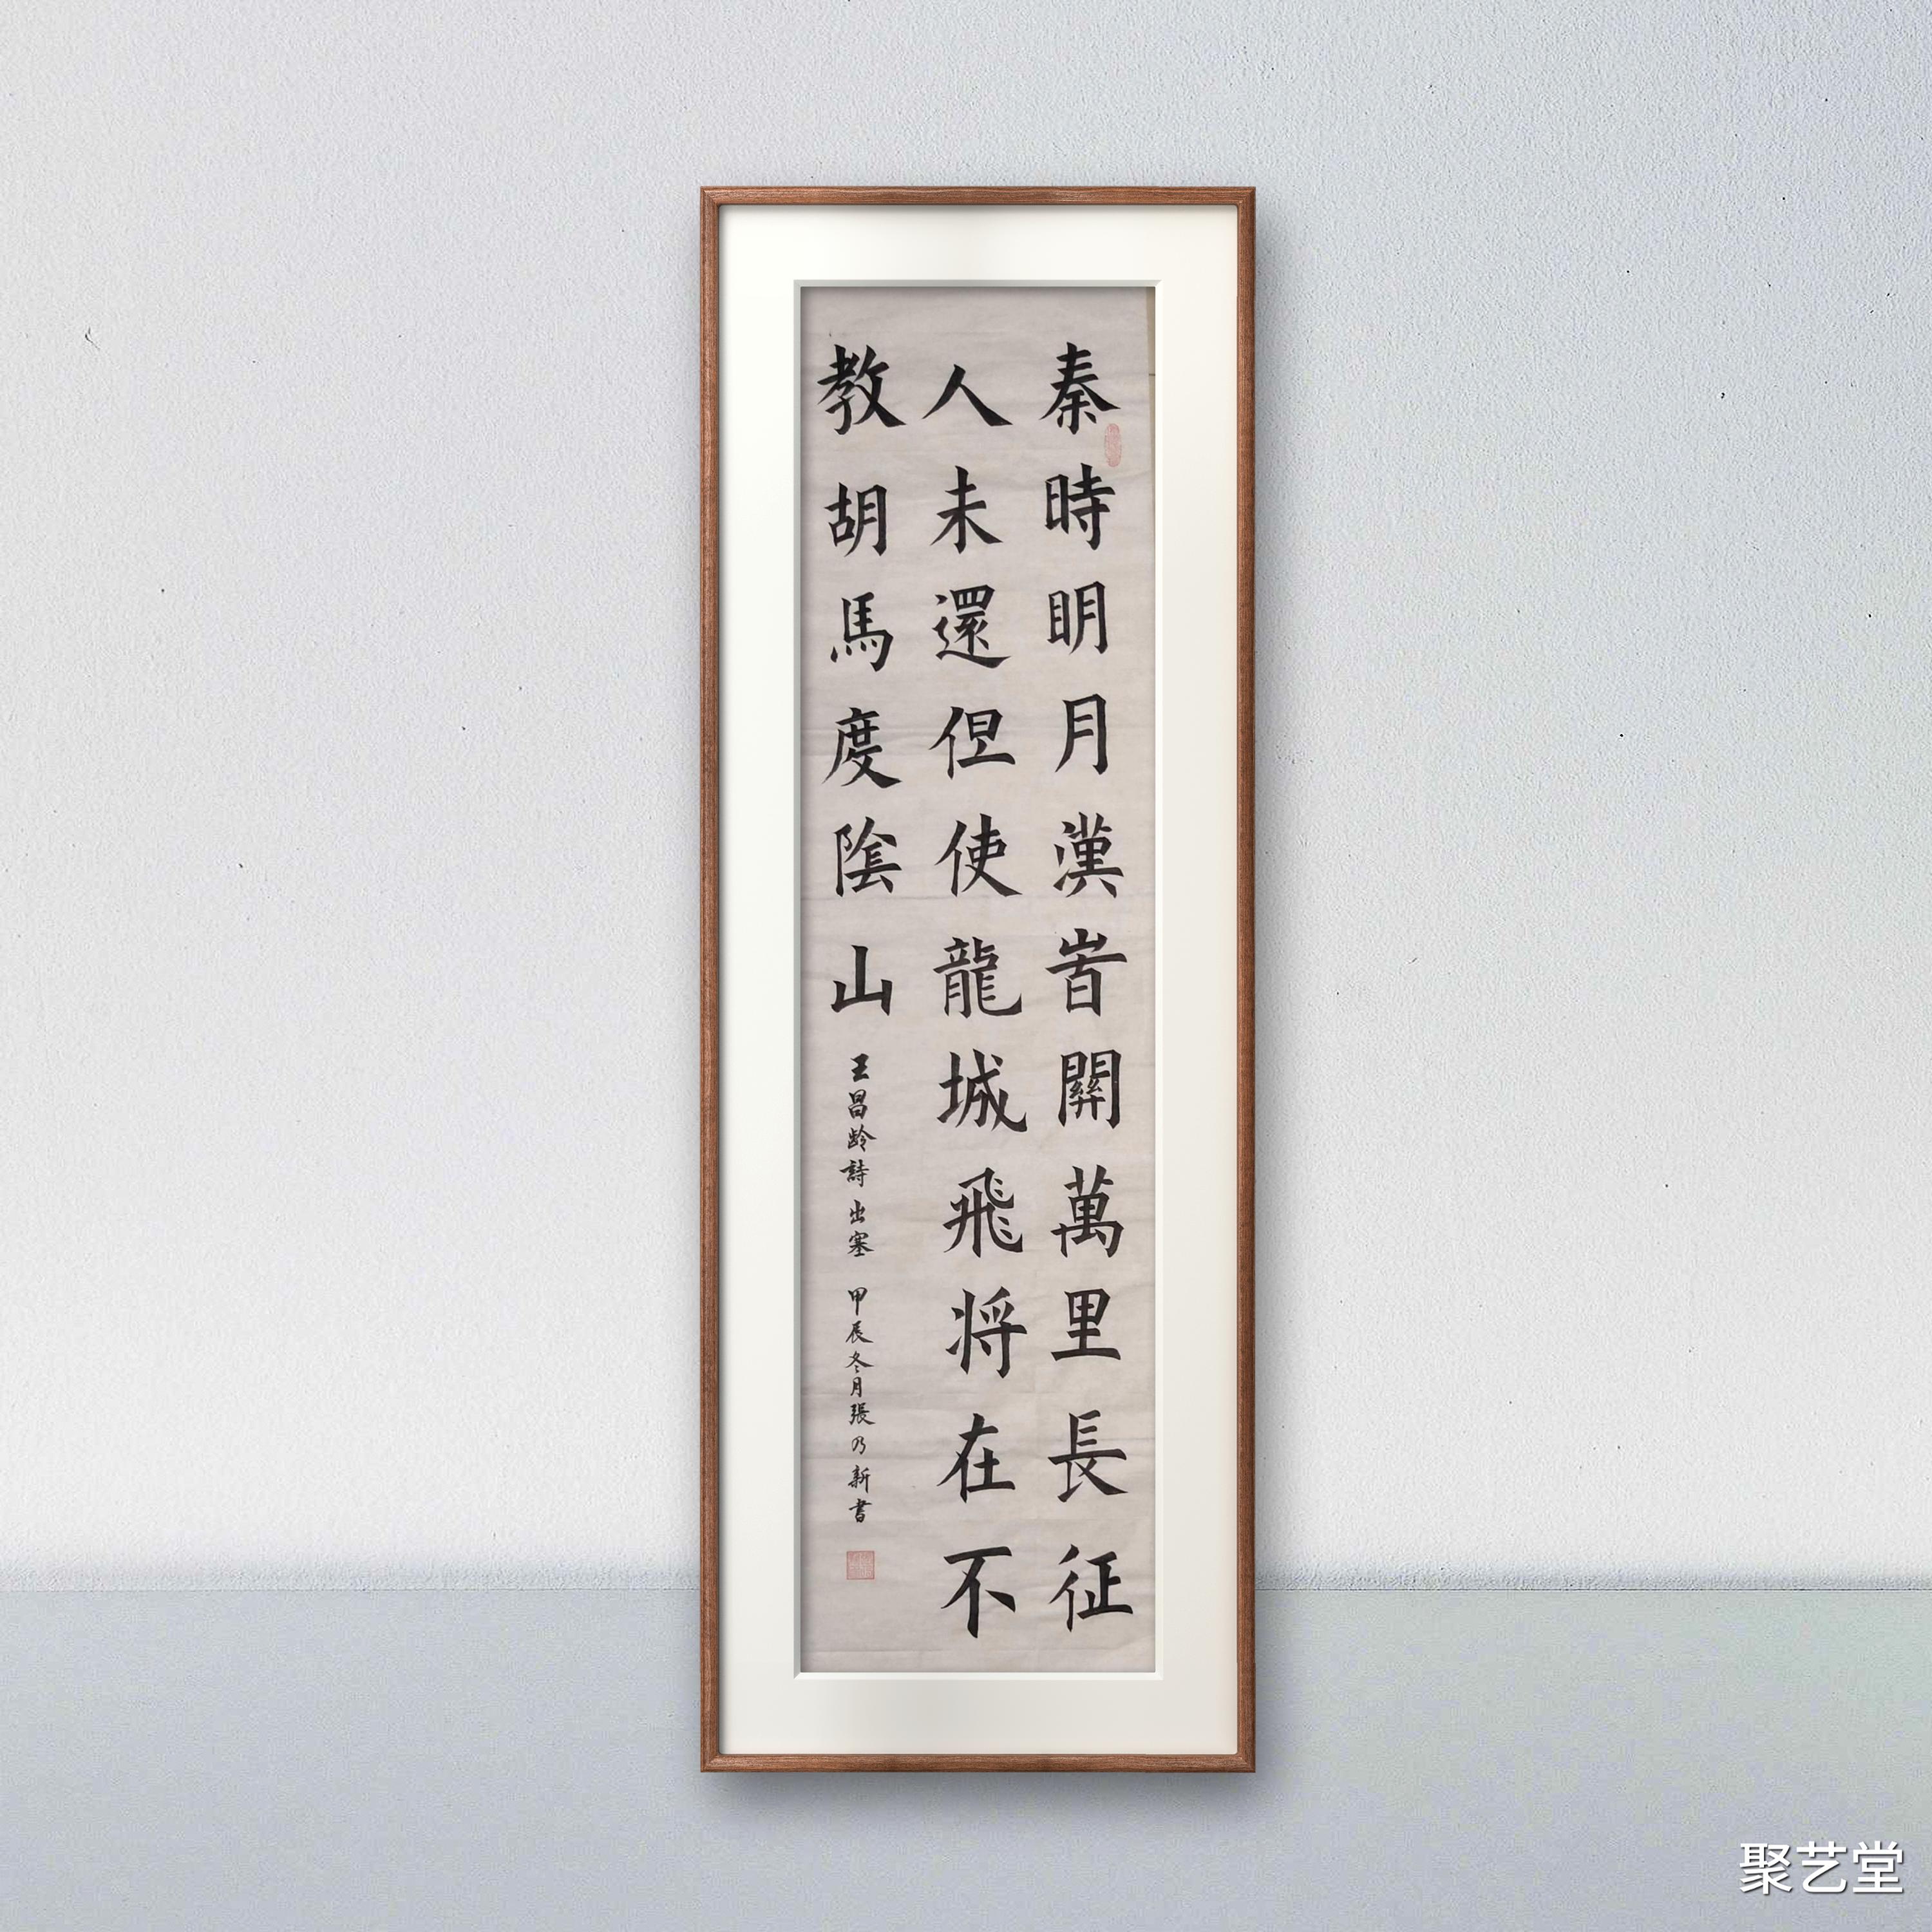 秦時明月漢旹關萬里長征
人未還但使龍城飛将在不
教胡馬度陰山
王昌龄詩出塞 甲辰冬月張乃新書
聚艺堂